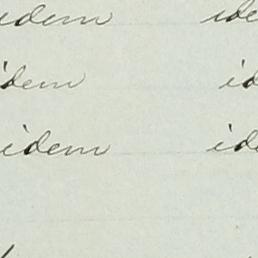 idem ide
idem id
idem ide